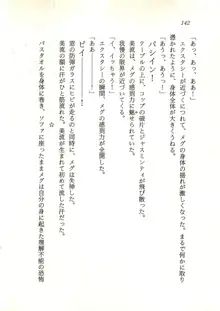 142
「あっ、あっ、ああっ！」
エクスタシーが近づくにつれて、メグの身体の揺れが激しくなる。まるで何かに取り
つかれたように、身体全体が大きくうねる。
パシイン！
テーブルの上にあったコップの破片とジャスミンティが飛び散った。
「あっ、あああっ！」
美波も、メグの感じ方に魅了されていく。
我慢の限界が近づいてくる。
「イ、イッちゃうっ！」
エクスタシーの瞬間、メグの感別力が全開した。
「ああーっ！」
ピシィーッ！
窓の防弾ガラスにひびが走るのと同時に、メグは失神した。
美波の顔に汗が浮かぶ。美波が生まれて初めて流した汗だった。
☆
バスタオルを身体に巻き、ソファに座ったままメグは自分の身に起きた理解不能の恐怖